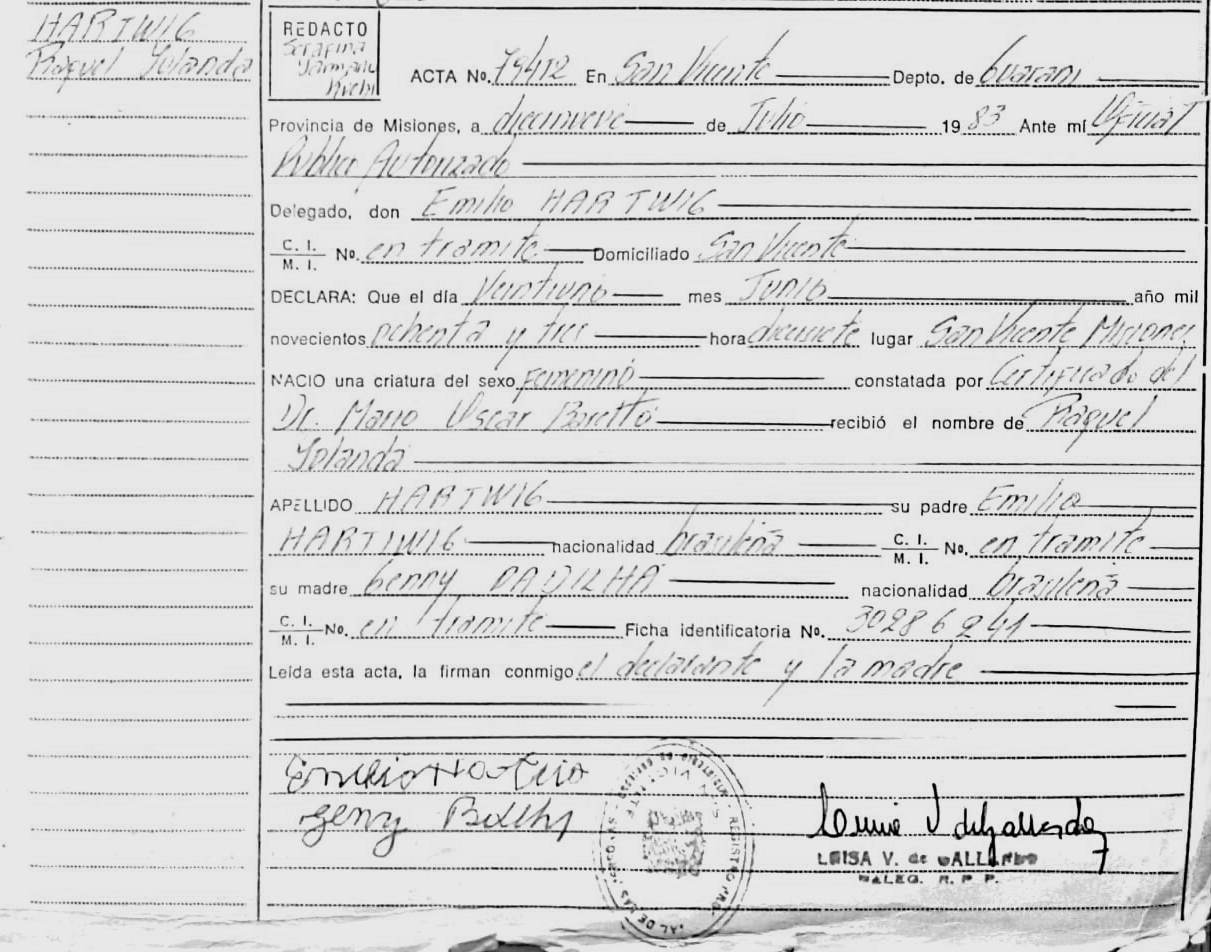 HARTWIG
Raquel Yolanda
REDACTO
Serafina
ACTA No. En San Vicente Depto. de Guarani
Provincia de Misiones, a diecinueve de Julio 19 83 Ante mí Oficial
Publico Autorizado
Delegado, don Emilio HARTWIG
C. I.
M. I. No. en tramite Domiciliado San Vicente
DECLARA: Que el día Veintiuno mes Junio año mil
novecientos ochenta y tres hora diecisiete lugar San Vicente Misiones
NACIO una criatura del sexo Femenino constatada por Certificado del
Dr. Mario Oscar Baretto recibió el nombre de Raquel
Yolanda
APELLIDO HARTWIG su padre Emilio
HARTWIG nacionalidad brasileña C. I.
M. I. No. en tramite
su madre Genny PADILHA nacionalidad brasileña
C. I.
M. I. No. en tramite Ficha identificatoria No. 30286241
Leída esta acta, la firman conmigo el declarante y la madre
LUISA V. de GALLARDO
DALEG. R. P. P.